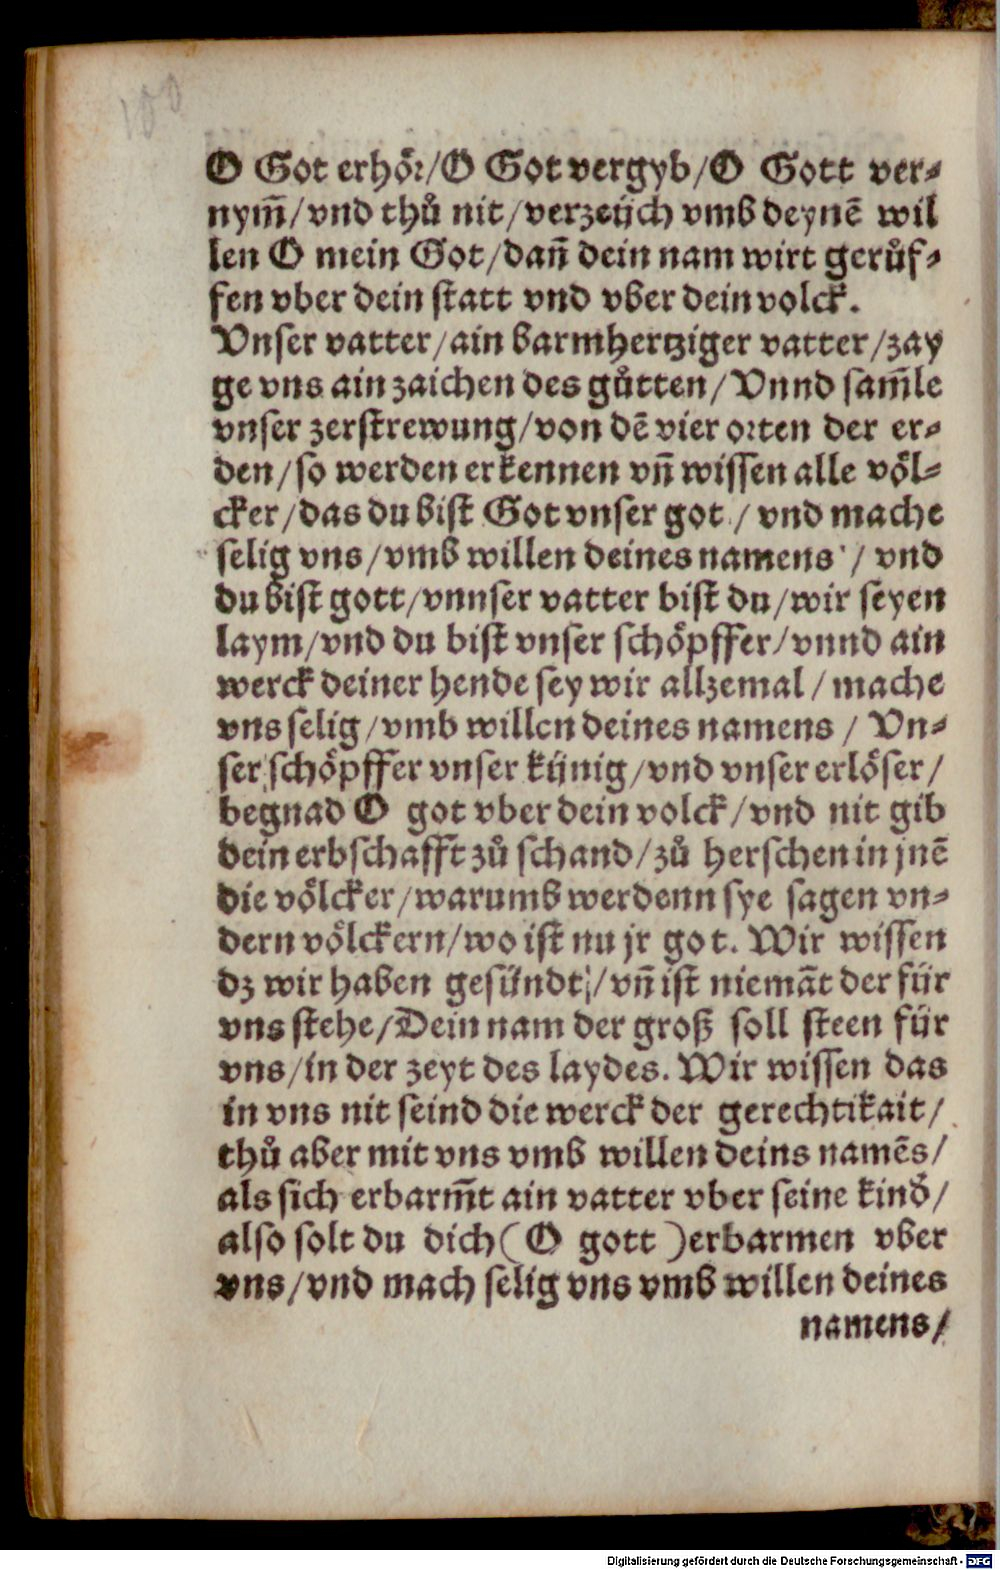 100
O Got erhoͤr/O Got vergyb/O Gott ver⸗
nym̃/vnd thuͦ nit/verzeüch vmb deynẽ wil
len O mein Got/dañ dein nam wirt geruͦf⸗
fen vber dein statt vnd vber dein volck.
Vnser vatter/ain barmhertziger vatter/zay
ge vns ain zaichen des guͦtten/Vnnd sam̃le
vnser zerstrewung/von dẽ vier orten der er⸗
den/so werden erkennen vñ wissen alle voͤl⸗
cker/das du bist Got vnser got/vnd mache
selig vns/vmb willen deines namens/vnd
du bist gott/vnnser vatter bist du/wir seyen
laym/vnd du bist vnser schoͤpffer/vnnd ain
werck deiner hende sey wir allzemal/mache
vns selig/vmb willen deines namens/Vn⸗
ser schoͤpffer vnser künig/vnd vnser erloͤser/
begnad O got vber dein volck/vnd nit gib
dein erbschafft zuͦ schand/zuͦ herschen in jnẽ
die voͤlcker/warumb werdenn sye sagen vn⸗
dern voͤlckern/wo ist nu jr got. Wir wissen
dz wir haben gesündt/vñ ist niemãt der für
vns stehe/Dein nam der groß soll steen für
vns/in der zeyt des laydes. Wir wissen das
in vns nit seind die werck der gerechtikait/
thuͦ aber mit vns vmb willen deins namẽs/
als sich erbarm̃t ain vatter vber seine kind/
also solt du dich (O gott) erbarmen vber
vns/vnd mach selig vns vmb willen deines
namens/
Digitalisierung gefördert durch die Deutsche Forschungsgemeinschaft - DFG